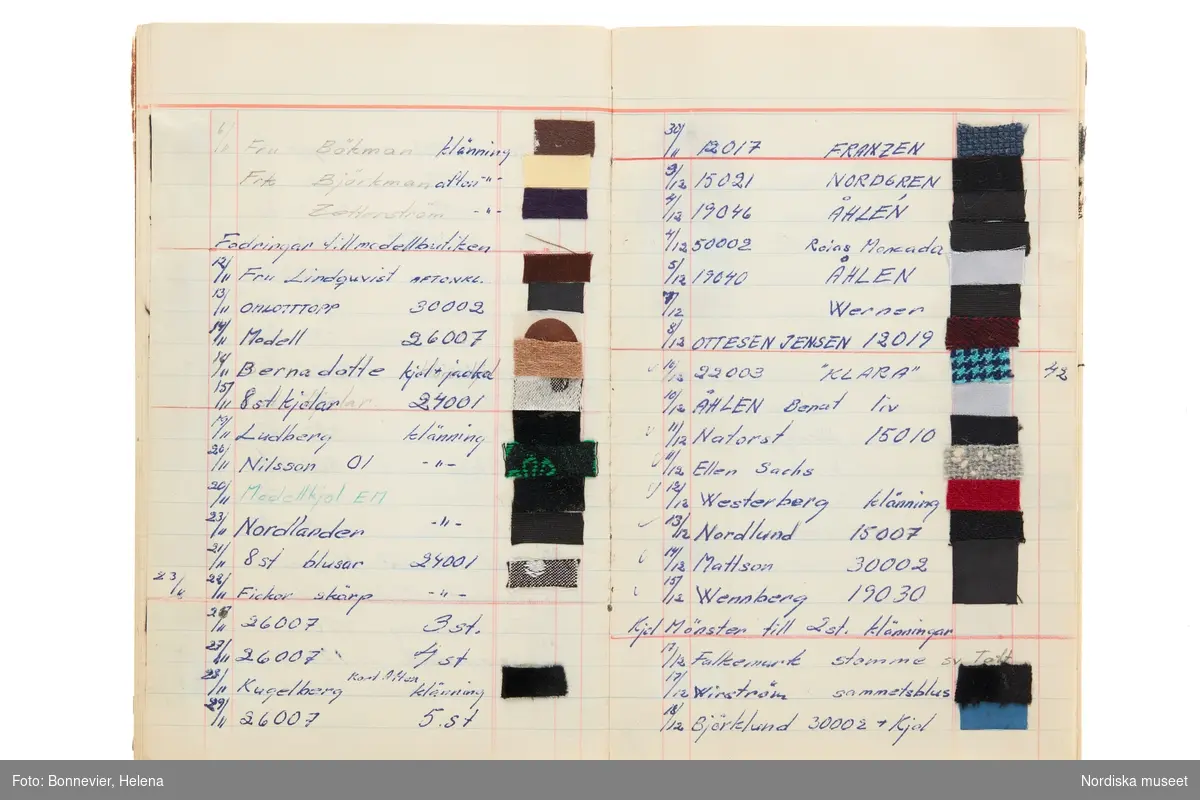 6/11 Fru Bökman klänning
Frk Björkman afton -"-
Zetterström -"-
Fodringar till modellbutiken
12/11 Fru Lindqwist AFTONKL.
13/11 30002
14/11 Modell 26007
14/11 Bernadotte kjol + jackel
15/11 8 st kjolar 24001
19/11 Ludberg klänning
20/11 Nilsson 01 -"-
20/11 Modellkjol EM
23/11 Nordlander -"-
21/11 8 st blusar 24001
23/11 22/11 Fickor skärp -"-
26007 3 st.
27/11 26007 4 st
28/11 Kugelberg Kort Afton klänning
29/11 26007 5.st
30/11 12017 FRANZEN
3/12 15021 NORDGREN
4/12 19046 ÅHLÉN
4/12 50002 Rojas Moncada
5/12 19040 ÅHLEN
7/12 Werner
8/12 OTTESEN JENSEN 12019
10/12 22003 "KLARA" 42
10/12 ÅHLEN Benat liv
11/12 Natorst 15010
11/12 Ellen Sachs
12/12 Westerberg klänning
13/12 Nordlund 15007
14/12 Mattson 30002
15/12 Wennberg 19030
Kjol Mönster till 2 st. klänningar
17/12 Falkemark stamme sv. Taft
17/12 Wirström sammetsblus
18/12 Björklund 30002 + Kjol
Foto: Bonnevier, Helena
Nordiska museet